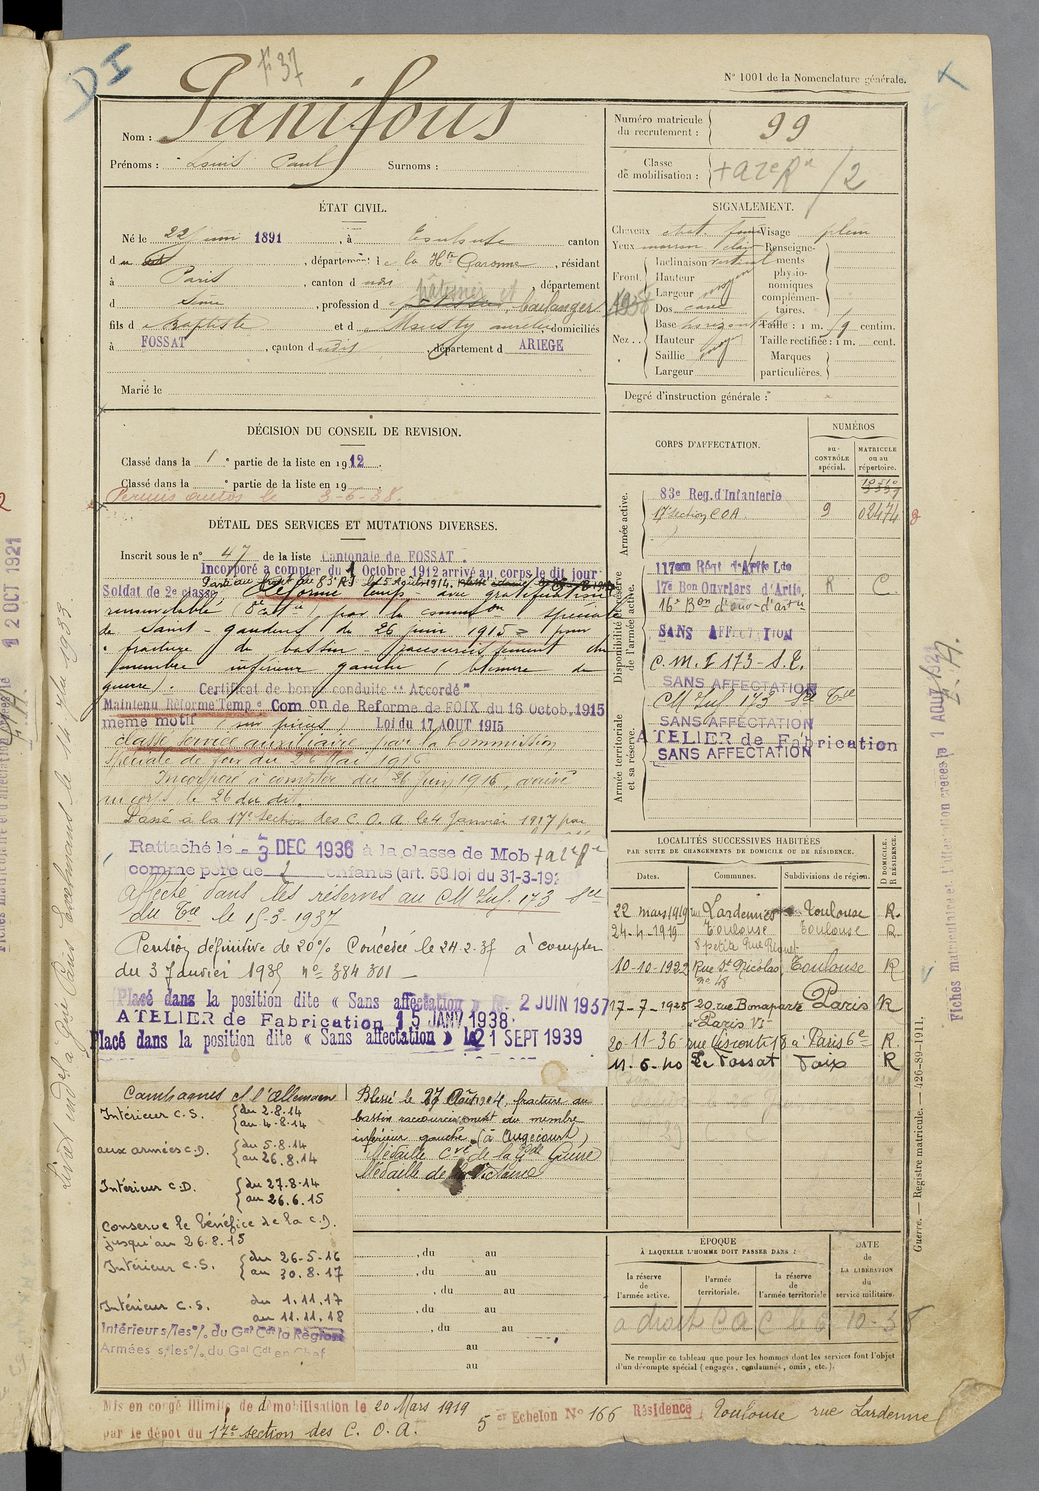 DI
N° 1001 de la Nomenclature générale.
Nom : Panifous
Prénoms : Louis Paul Surnoms :
Numéro matricule du recrutement : 99
Classe de mobilisation : /2
ÉTAT CIVIL.
Né le 22 1891, à Toulouse canton
du dit, département de la Hte Garonne, résidant
à Paris, canton d dudit département
d Seine, profession de pâtissier et boulanger
fils de Baptiste et de domiciliés
à FOSSAT, canton dudit département d ARIEGE
Marié le
SIGNALEMENT.
Cheveux chat. Visage plein
Yeux marron clair
Front Inclinaison vertical
Hauteur moyen
Largeur moy
Nez Dos cave
Base horizontale
Hauteur moy
Saillie
Largeur
Renseignements physionomiques complémentaires.
Taille : 1 m. centim.
Taille rectifiée : 1 m. cent.
Marques particulières.
Degré d'instruction générale :
DÉCISION DU CONSEIL DE REVISION.
Classé dans la 1e partie de la liste en 1912.
Classé dans la partie de la liste en 19
Permis autos le 3-6-38.
DÉTAIL DES SERVICES ET MUTATIONS DIVERSES.
Inscrit sous le n° 47 de la liste Cantonale de FOSSAT.
Incorporé à compter du 1 Octobre 1912 arrivé au corps le dit jour
Soldat de 2e classe, Réformé temp. avec gratification
renouvelable par la commission spéciale
de Saint-Gaudens du 26 juin 1915 pour
fracture de bassin raccourcissement du
membre inférieur gauche (blessure de
guerre). Certificat de bonne conduite "Accordé"
Maintenu Réformé Temp e Com on de Réforme de FOIX du 16 Octob. 1915
même motif (sur pièces) Loi du 17 AOUT 1915
Classé service auxiliaire par la Commission
Spéciale de Foix du 26 Mai 1916
Incorporé à compter du 26 Juin 1916, arrivé
au corps le 26 du dit.
Passé à la 17e Section des C.O.A. le 4 Janvier 1917 par
Rattaché le - 3 DEC 1936 à la classe de Mob
comme père de enfants (art. 58 loi du 31-3-192
Affecté dans les réserves au CM Inf. 173
du le 15-3-1937
Pension définitive de 20% Concédée le 24-2-35 à compter
du 3 Janvier 1935 n° 384 301
Placé dans la position dite « Sans affectation » le 2 JUIN 1937
ATELIER de Fabrication 15 JANV 1938.
Placé dans la position dite « Sans affectation » le 21 SEPT 1939
CORPS D'AFFECTATION.
NUMÉROS
au CONTRÔLE spécial.
MATRICULE ou au répertoire.
Armée active.
83e Reg. d'Infanterie
17e Section COA. 9 02474
Disponibilité et réserve de l'armée active.
117eme Régt d'Artie Lde
17e Bon Ouvriers d'Artie, R C
16e Bon d'ouv. d'artie
SANS AFFECTATION
C.M.I 173 - S.E.
SANS AFFECTATION
Armée territoriale et sa réserve.
CM Inf 173
SANS AFFECTATION
ATELIER de Fabrication
SANS AFFECTATION
LOCALITÉS SUCCESSIVES HABITÉES
PAR SUITE DE CHANGEMENTS DE DOMICILE OU DE RÉSIDENCE.
Dates. Communes. Subdivisions de région. D DOMICILE. R RÉSIDENCE.
22 mars 1919 rue Lardenne Toulouse R.
24-4-1919 Toulouse Toulouse R
8 petite Rue Riquet
10-10-1922 Rue St Nicolas Toulouse R
n° 48
17-7-1925 20 rue Bonaparte Paris R
à Paris VI
20-11-36 rue Visconti 18 à Paris 6e R.
11-6-40 Le Fossat Foix R
Campagnes c/ l'Allemagne
Intérieur C.S. du 2-8-14
au 4-8-14
aux armées C.D. du 5.8.14
au 26.8.14
Intérieur C.D. du 27-8-14
au 26.6.15
Conserve le bénéfice de la C.D.
jusqu'au 26-8-15
Intérieur C.S. du 26-5-16
au 30.8.17
Intérieur C.S. du 1.11.17
au 11.11.18
Intérieur s/les o/. du Gal Cdt la Région
Armées s/les o/. du Gal Cdt en Chef
Blessé le 27 Août 1914, fracture du
bassin raccourcissement du membre
inférieur gauche (à Angecourt)
Médaille Cve de la Gde Guerre
Médaille de la Victoire
, du au
, du au
, du au
, du au
, du au
au
au
ÉPOQUE
À LAQUELLE L'HOMME DOIT PASSER DANS :
la réserve de l'armée active.
l'armée territoriale.
la réserve de l'armée territoriale
DATE de LA LIBÉRATION du service militaire.
a droit C a C le 6-10-35
Ne remplir ce tableau que pour les hommes dont les services font l'objet
d'un décompte spécial (engagés, condamnés, omis, etc.).
Mis en congé illimité de démobilisation le 20 Mars 1919
5 er Echelon N° 166 Résidence Toulouse rue Lardenne
par le dépôt du 17e section des C.O.A.
Guerre. — Registre matricule. — 426-89-1911.
12 OCT 1921